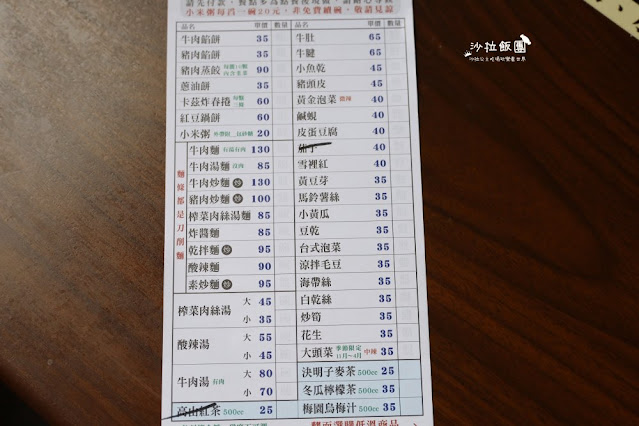 小米粥每買一碗20元，非免費續碗，敬請見諒
品名 單價 數量
牛肉餡餅 35
豬肉餡餅 35
豬肉蒸餃 90
蔥油餅 35
卡茲炸春捲 60
紅豆鍋餅 60
小米粥 20
麵條都是刀削麵
牛肉麵 有湯有肉 130
牛肉湯麵 沒肉 85
牛肉炒麵 炒 130
豬肉炒麵 炒 100
榨菜肉絲湯麵 85
炸醬麵 85
乾拌麵 95
酸辣麵 90
素炒麵 95
榨菜肉絲湯 大 45
小 35
酸辣湯 大 55
小 45
牛肉湯 有肉 大 80
小 70
高山紅茶 500cc 25
品名 單價 數量
牛肚 65
牛腱 65
小魚乾 45
豬頭皮 45
黃金泡菜 微辣 40
鹹蜆 40
皮蛋豆腐 40
茄子 40
雪裡紅 40
黃豆芽 35
馬鈴薯絲 35
小黃瓜 35
豆乾 35
台式泡菜 35
涼拌毛豆 35
海帶絲 35
白乾絲 35
炒筍 35
花生 35
大頭菜 季節限定 11月~4月 中辣 35
決明子麥茶 500cc 25
冬瓜檸檬茶 500cc 35
梅園烏梅汁 500cc 35
沙拉飯團
沙拉公主吃喝玩樂看世界